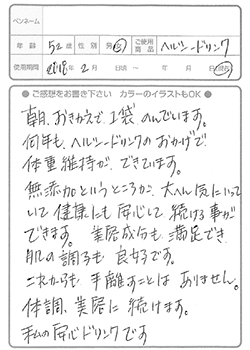 ペンネーム
年齢 52歳 性別 男・女 ご使用商品 ヘルシードリンク
使用期間 2018年2月 日頃 ～ 年 月 日頃 現在
● ご感想をお書き下さい カラーのイラストもOK ●
朝、おきがえで1袋のんでいます。
何年も、ヘルシードリンクのおかげで
体重維持が、できています。
無添加というところが、大へん気にいって
いて健康にも安心して続ける事が
できます。 美容成分も、満足でき
肌の調子も良好です。
これからも手離すことはありません。
体調、美容に続けます。
私の安心ドリンクです